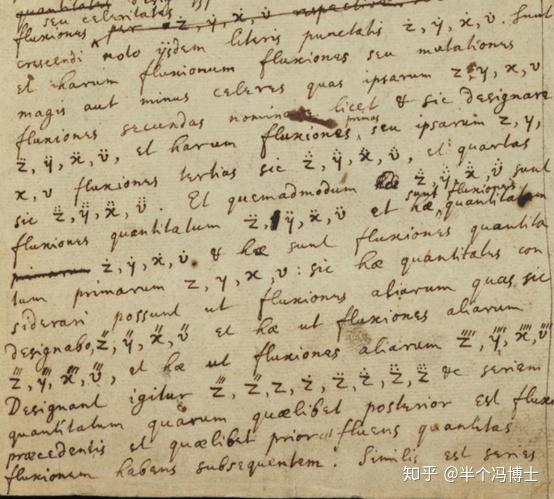 quantitatum
seu celeritates
fluxiones per ż, ẏ, ẋ, v̇ respective
crescendi noto ijsdem literis punctatis ż, ẏ, ẋ, v̇. Sunt
et harum fluxionum fluxiones seu mutationes
magis aut minus celeres quas ipsarum z, y, x, v
fluxiones secundas nominare licet & sic designare
z̈, ÿ, ẍ, v̈, et harum fluxiones primas seu ipsarum z, y,
x, v fluxiones tertias sic z⃛, y⃛, x⃛, v⃛, et quartas
sic z⃜, y⃜, x⃜, v⃜. Et quemadmodum z⃛, y⃛, x⃛, v⃛ sunt
fluxiones quantitatum z̈, ÿ, ẍ, v̈ et hæ sunt fluxiones quantitatum
primarum ż, ẏ, ẋ, v̇ & hæ sunt fluxiones quantita
tum primarum z, y, x, v: sic hæ quantitates con
siderari possunt ut fluxiones aliarum quas sic
designabo, z̍, y̍, x̍, v̍ et hæ ut fluxiones aliarum
z̎, y̎, x̎, v̎, et hæ ut fluxiones aliarum z‴, y‴, x‴, v‴
Designant igitur z̎, z̍, z, ż, z̈, z⃛, z⃜ &c seriem
quantitatum quarum quælibet posterior est fluxio
præcedentis et quælibet prior fluens quantitas
fluxionem habens subsequentem. Similis est series
知乎 @半个冯博士